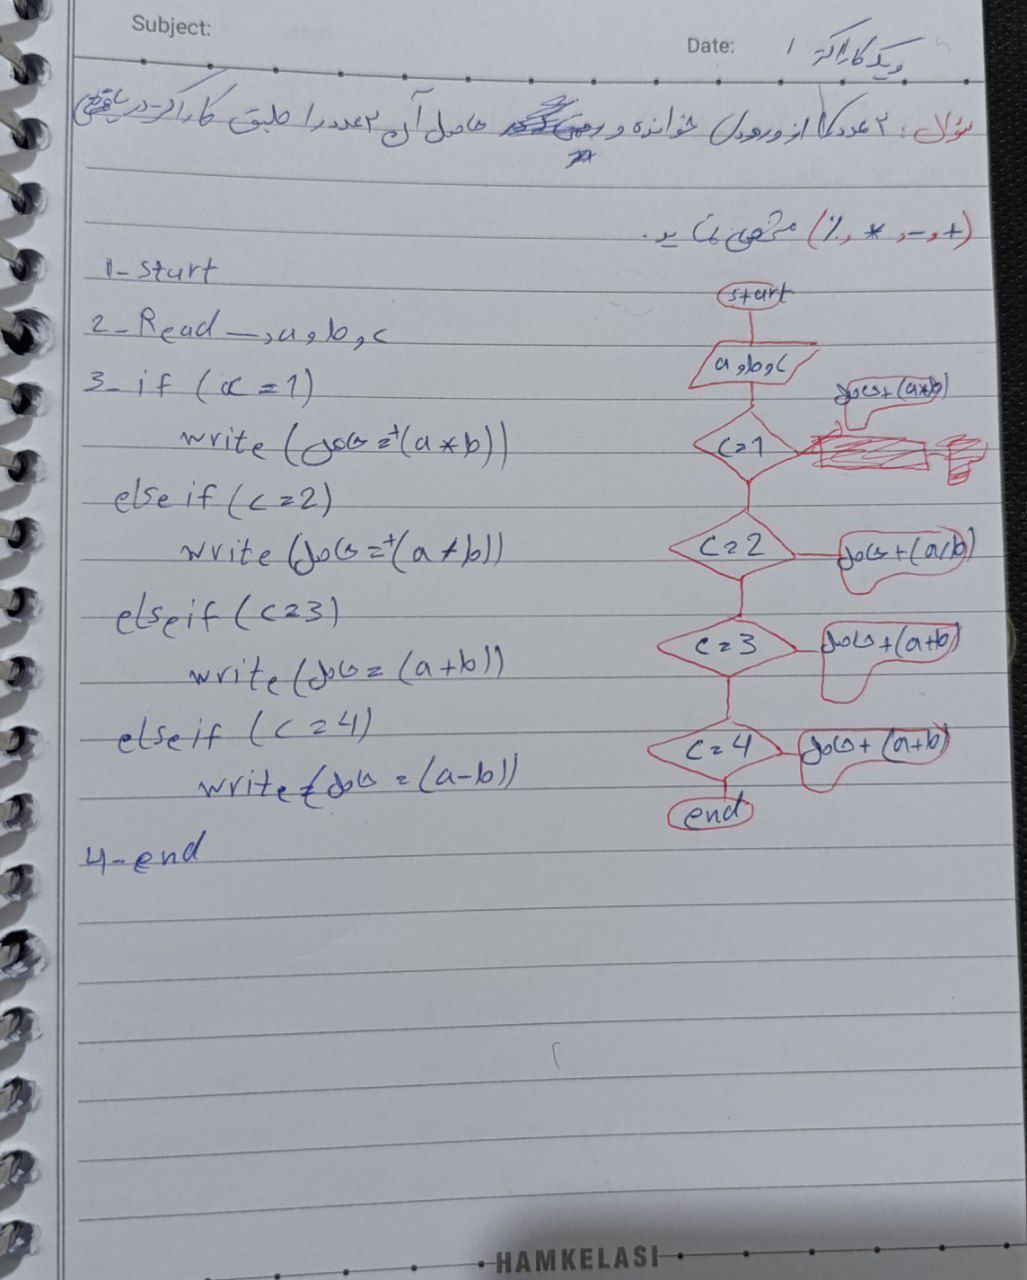 Subject:
Date: /
و یک کاراکتر
سؤال: ۲ عدد را از ورودی خوانده و حاصل آن ۲ عدد را طبق کاراکتر دریافتی
(+, -, *, %) مشخص نمایید.
1- start
2- Read → a, b, c
3- if (c = 1)
write (حاصل =+(a * b))
else if (c = 2)
write (حاصل =+(a / b))
else if (c = 3)
write (حاصل = (a + b))
else if (c = 4)
write (حاصل = (a - b))
4- end
start
a, b, c
c = 1
حاصل + (a*b)
c = 2
حاصل + (a/b)
c = 3
حاصل + (a+b)
c = 4
حاصل + (a+b)
end
HAMKELASI